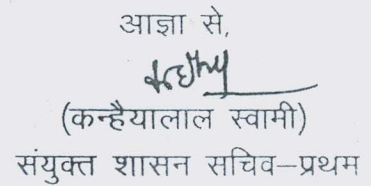 आज्ञा से,
(कन्हैयालाल स्वामी)
संयुक्त शासन सचिव–प्रथम